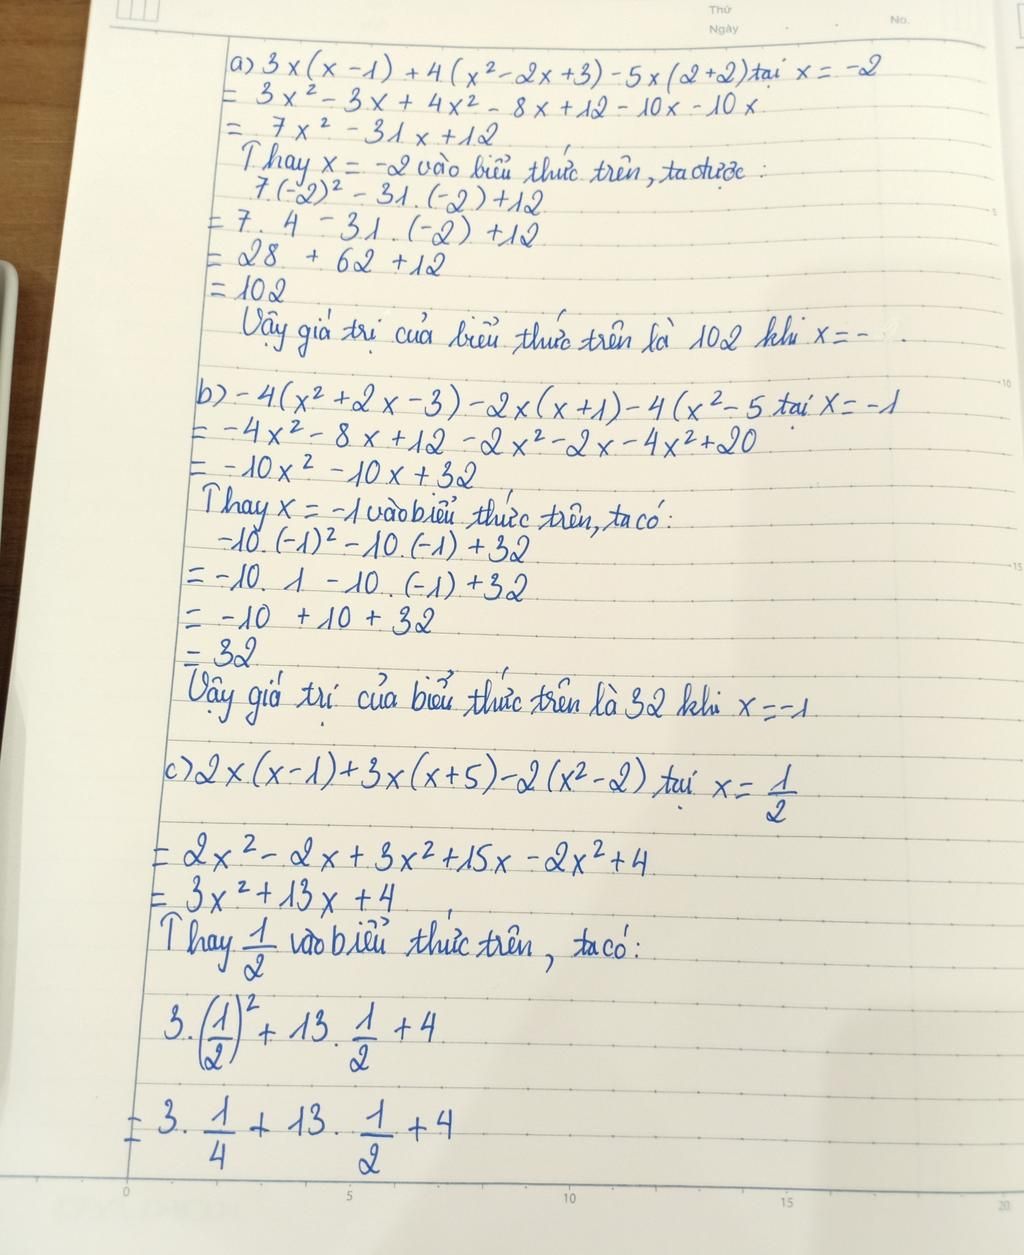 Thứ
Ngày
No.
a) 3x(x-1) + 4(x²-2x+3) - 5x(2+2) tại x = -2
= 3x² - 3x + 4x² - 8x + 12 - 10x - 10x
= 7x² - 31x + 12
Thay x = -2 vào biểu thức trên, ta được:
7.(-2)² - 31.(-2) + 12
= 7. 4 - 31.(-2) + 12
= 28 + 62 + 12
= 102
Vậy giá trị của biểu thức trên là 102 khi x = -
b) -4(x²+2x-3) - 2x(x+1) - 4(x²-5 tại x = -1
= -4x² - 8x + 12 - 2x² - 2x - 4x² + 20
= -10x² - 10x + 32
Thay x = -1 vào biểu thức trên, ta có:
-10.(-1)² - 10.(-1) + 32
= -10. 1 - 10. (-1) + 32
= -10 + 10 + 32
= 32
Vậy giá trị của biểu thức trên là 32 khi x = -1
c) 2x(x-1) + 3x(x+5) - 2(x²-2) tại x = 1/2
= 2x² - 2x + 3x² + 15x - 2x² + 4
= 3x² + 13x + 4
Thay 1/2 vào biểu thức trên, ta có:
3.(1/2)² + 13. 1/2 + 4
= 3. 1/4 + 13. 1/2 + 4
0 5 10 15 20